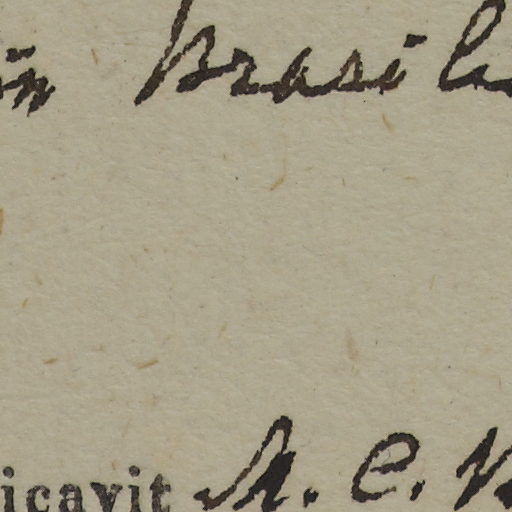 in Brasil
icavit M. C.